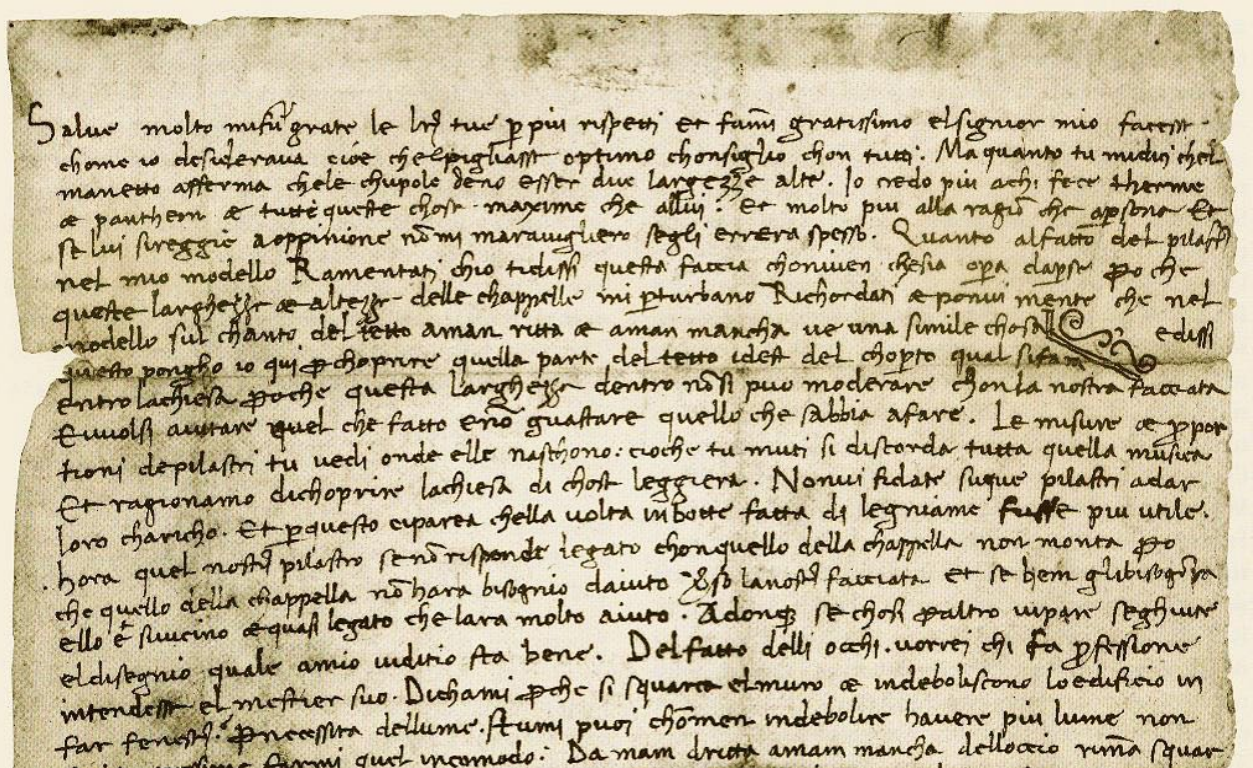 Salve molto mi fur̄ grate le lr̄e tue ꝑ piu rispetti et fam̄i gratissimo el signior mio facesse
chome io desiderava cioè chel pigliasse optimo chonsiglio chon tutti. Ma quanto tu mi dici chel
manetto afferma chele chupole deno esser due largezze alte. Io credo piu achi fece therme
æ pantheon æ tutte queste chose maxime che allui: Et molto piu alla ragiō che a ꝑsona Et
se lui si reggie a oppinione nō mi maravigliero segli errera spesso. Quanto al fatto del pilastr̄
nel mio modello Ramentati chio ti dissi questa faccia chonvien che sia oꝑa da ꝑ se ꝑo che
queste larghezze æ altezze delle chappelle mi ꝑturbano Richordati æ ponvi mente che nel
modello sul chanto del tetto a man ritta æ a man mancha ve una simile chosa e dissi
questo pongho io qui ꝑ choprire quella parte del tetto idest del choꝑto qual si fara
entro la chiesa ꝑo che questa larghezze dentro nō si puo moderare chon la nostra facciata
E vuolsi aiutare quel che fatto e nō guastare quello che sabbia a fare. Le misure æ ꝓpor
tioni de pilastri tu vedi onde elle naschono: cio che tu muti si discorda tutta quella musica
Et ragionamo di choprire la chiesa di chose leggiera. Non vi fidate su que pilastri a dar
loro charicho. Et ꝑ questo ci parea chella volta in botte fatta di legniame fusse piu utile.
hora quel nostr̄ pilastro se nō risponde legato chon quello della chappella non monta ꝑo
che quello della chappella nō hara bisognio daiuto verso la nostr̄ facciata et se ben gli bisognia
ello è si vicino æ quasi legato che lara molto aiuto. Adonqꝫ se chosi ꝑ altro vi pare seghuite
el disegnio quale a mio iuditio sta bene. Del fatto delli occhi. vorrei chi fa ꝓfessione
intendesse el mestier suo. Dichami ꝑche si squarta el muro æ indeboliscono lo edificio in
far fenestr̄? ꝑ necessita del lume. Se tu mi puoi chō men indebolire havere piu lume non
farmi quel incomodo: Da man dritta a man mancha dell occio riman squar